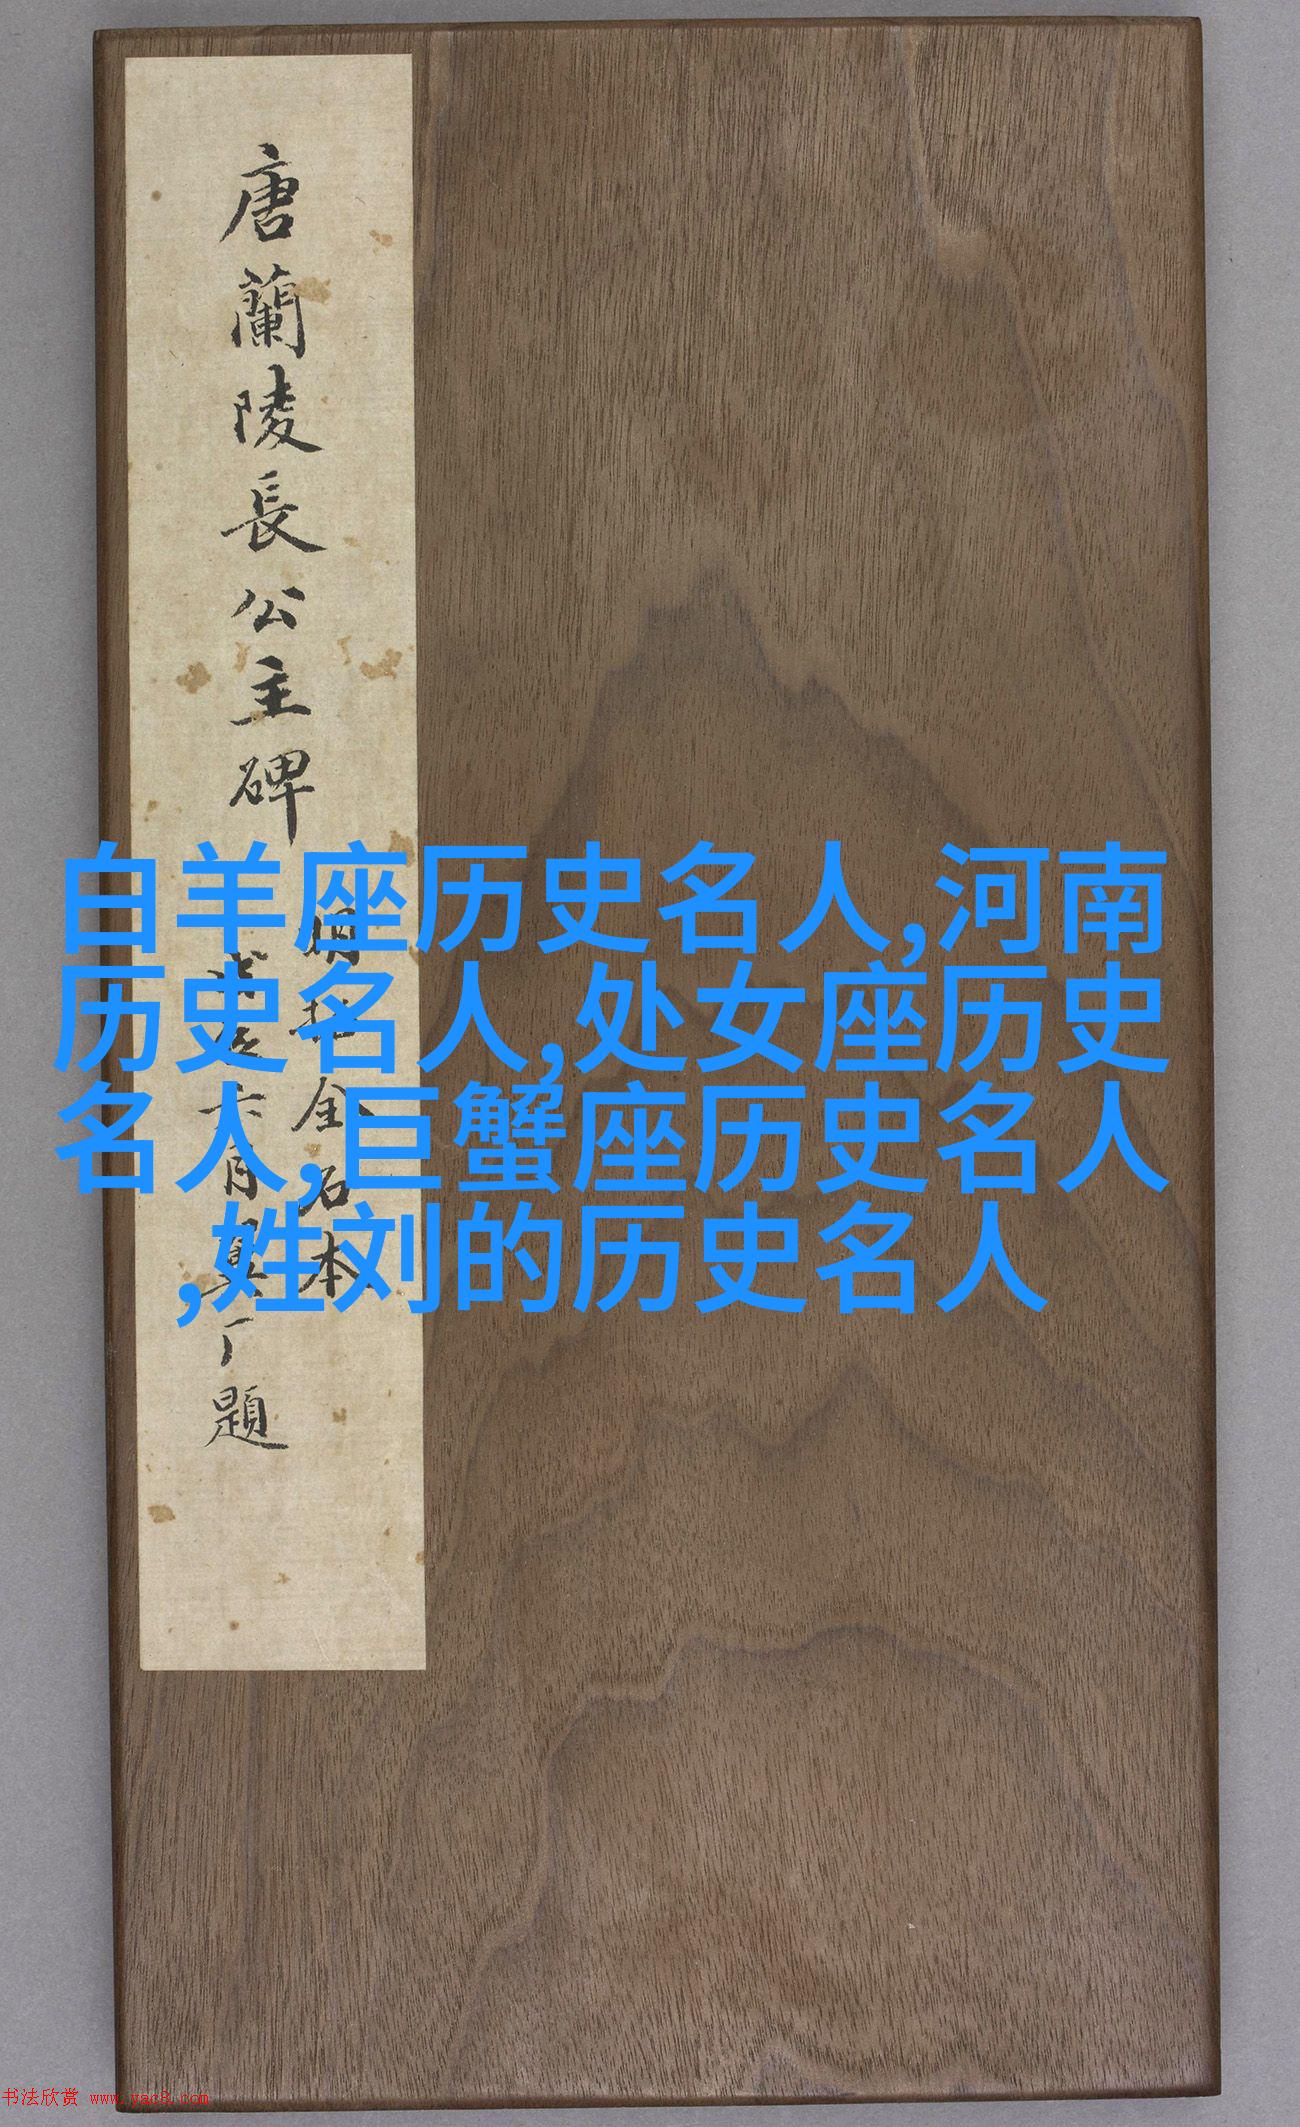 唐蘭陵長公主碑
明拓全石本
六月
題
白羊座历史名人,河南
历史名人,处女座历史
名人,巨蟹座历史名人
,姓刘的历史名人
书法欣赏 www.yac8.com